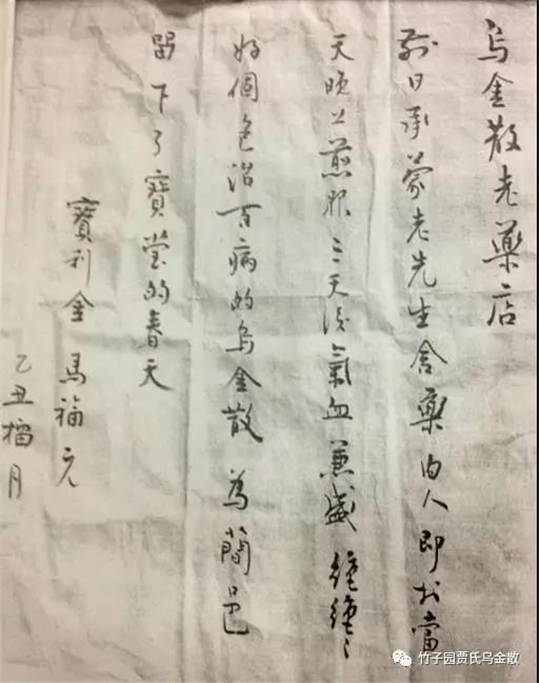 烏金散老藥店
前日承蒙老先生舍藥內人即於當
天晚上煎服三天後氣血兼盛
好個包治百病的烏金散 為簡邑
留下了寶的春天
利金 馬福元
乙丑榴月
竹子园贾氏乌金散